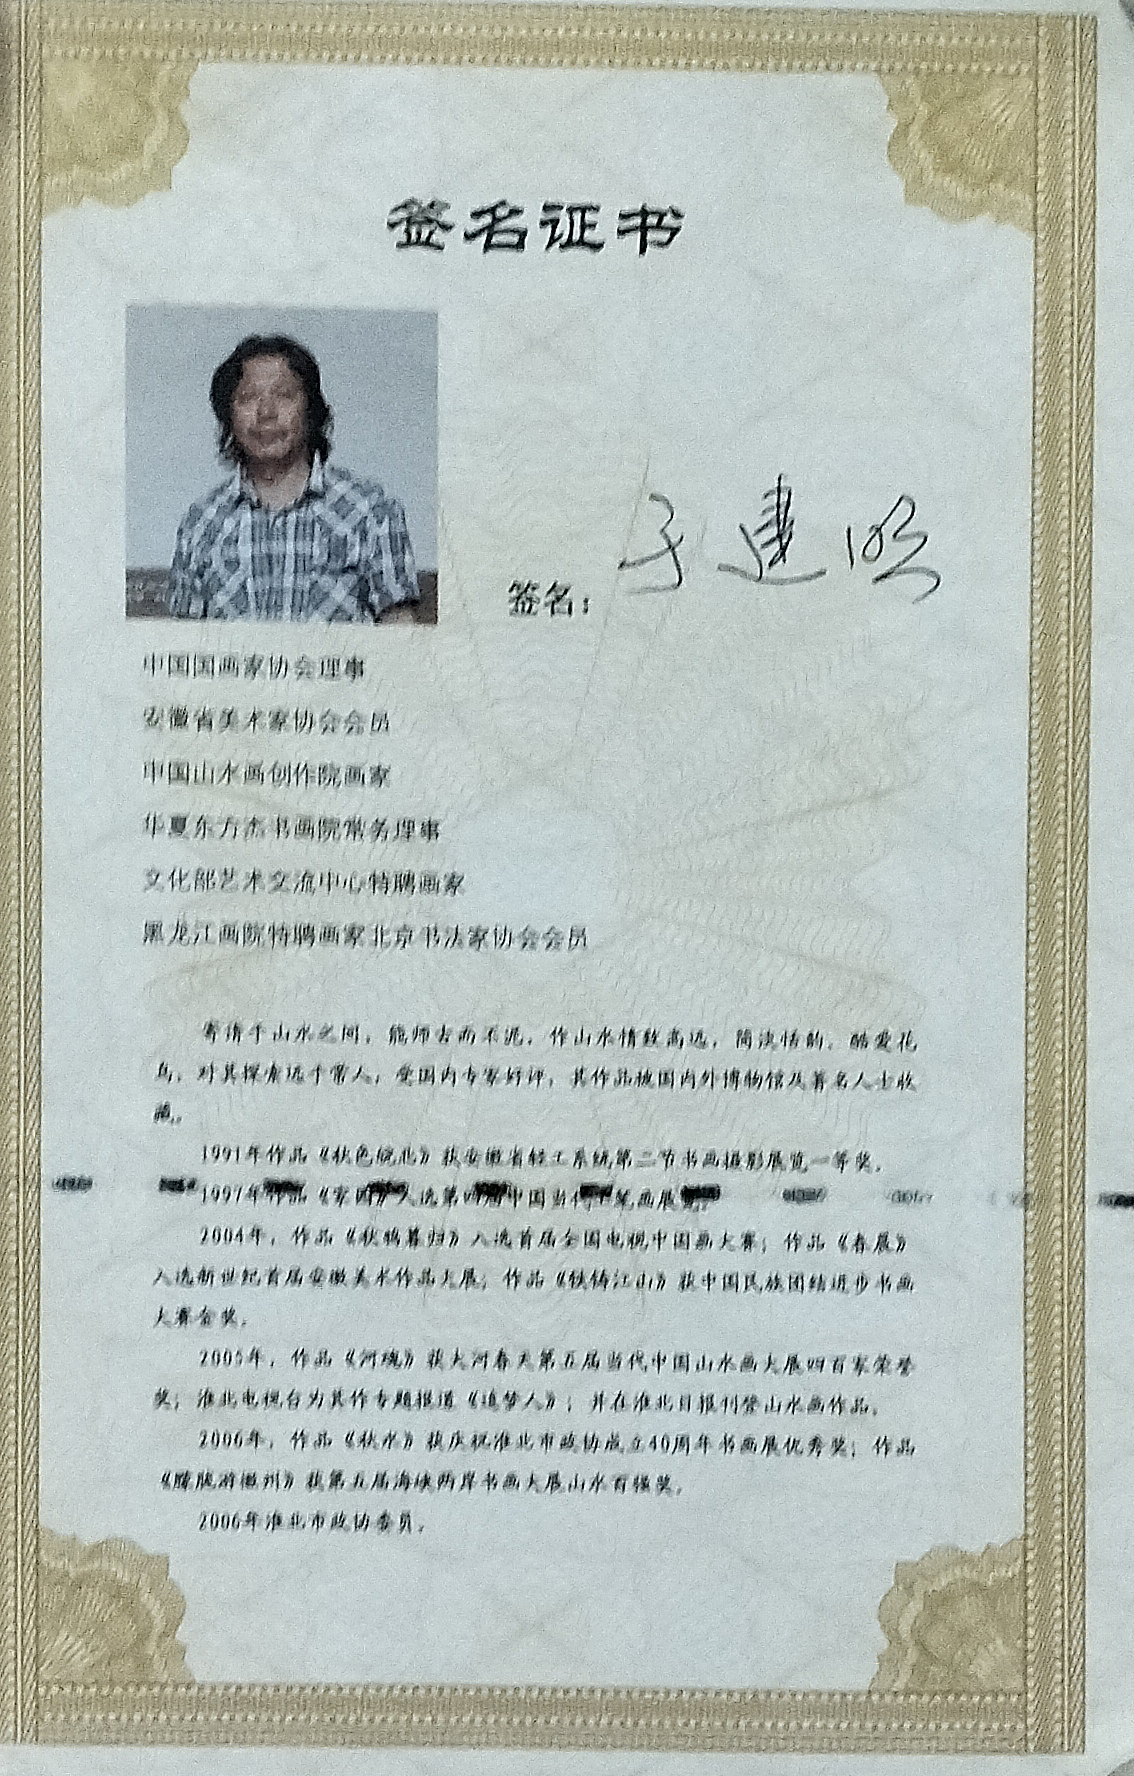 签名证书
签名：于建
中国国画家协会理事
安徽省美术家协会会员
中国山水画创作院画家
华夏东方杰书画院常务理事
文化部艺术交流中心特聘画家
黑龙江画院特聘画家北京书法家协会会员
寄情于山水之间，能师古而不泥，作山水情致高远，简淡恬韵，酷爱花
鸟，对其探索远于常人，受国内专家好评，其作品被国内外博物馆及著名人士收
藏。
1991年作品《秋色皖北》获安徽省轻工系统第二节书画摄影展览一等奖。
1997年作品《家园》入选第四届中国当代工笔画展览。
2004年，作品《秋鸦暮归》入选首届全国电视中国画大赛；作品《春晨》
入选新世纪首届安徽美术作品大展；作品《铁铸江山》获中国民族团结进步书画
大赛金奖。
2005年，作品《河魂》获大河春天第五届当代中国山水画大展四百家荣誉
奖；淮北电视台为其作专题报道《追梦人》；并在淮北日报刊登山水画作品。
2006年，作品《秋水》获庆祝淮北市政协成立40周年书画展优秀奖；作品
《朦胧游徽州》获第五届海峡两岸书画大展山水百强奖。
2006年淮北市政协委员。